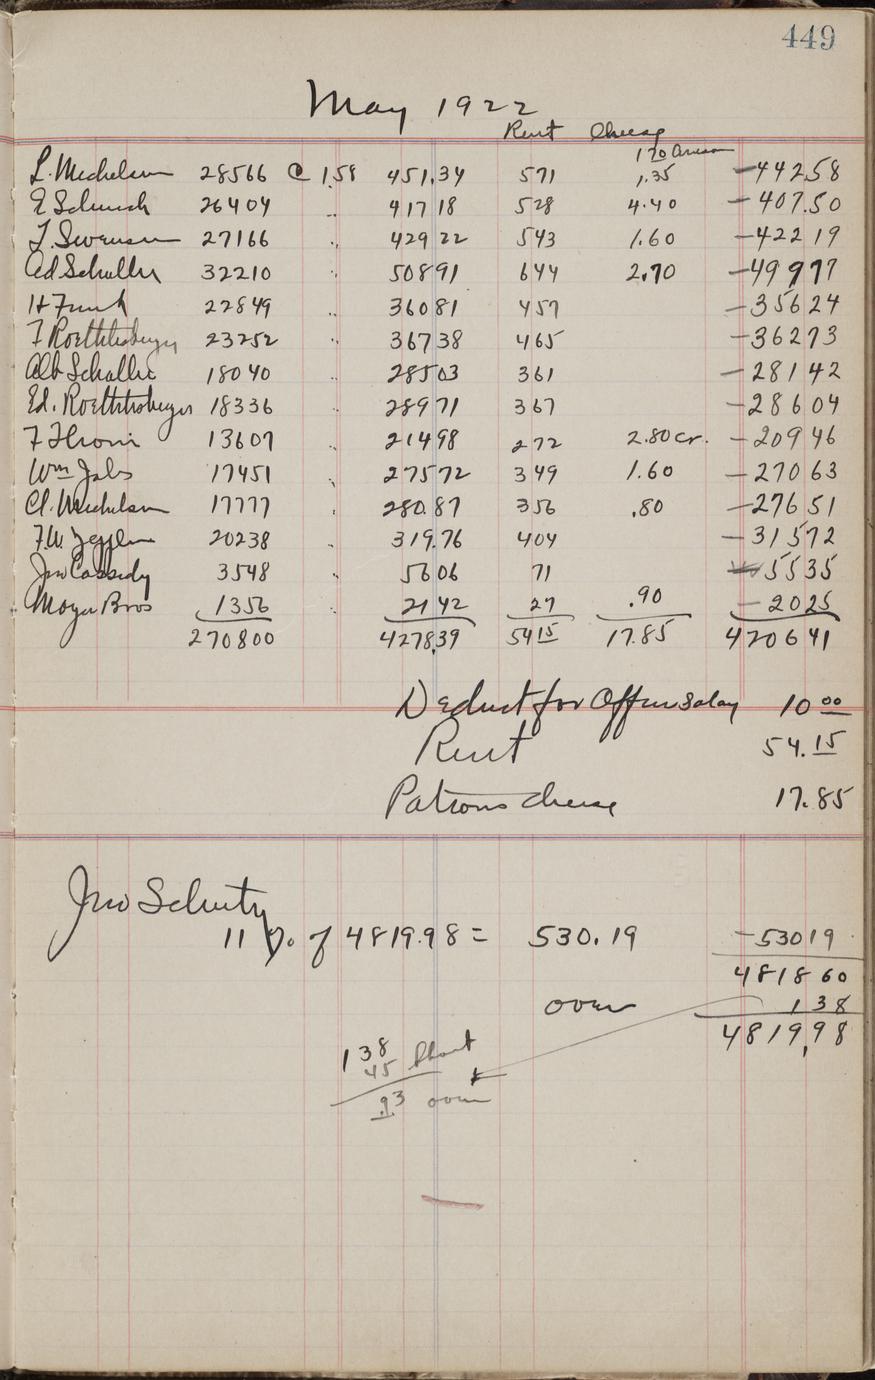 449
May 1922
Rent Cheese
170
L. Michelson 28566 @ 1.58 451.34 571 1.35 -44258
E Schunk 26404 " 41718 528 4.40 -407.50
J. Swenson 27166 " 42922 543 1.60 -42219
Ad Schaller 32210 " 50891 644 2.70 -49977
H Funk 22849 " 36081 457 -35624
F Roethlisberger 23252 " 36738 465 -36273
Alb Schaller 18040 " 28503 361 -28142
Ed. Roethlisberger 18336 28971 367 -28604
F 13607 " 21498 272 2.80 cr. -20946
Wm Jabs 17451 " 27572 349 1.60 -27063
Cl. Michelson 17777 " 280.87 356 .80 -27651
F.W. 20238 " 319.76 404 -31572
Jno Cassidy 3548 " 5606 71 5535
Moyer Bros 1356 " 2142 27 .90 -2025
270800 4278.39 5415 17.85 420641
Deduct for Salary 10 00
Rent 54.15
Patrons cheese 17.85
Jno Schutz
11 % of 4819.98 = 530.19 -53019
481860
over 138
4819,98
138
45 Short
.93 over